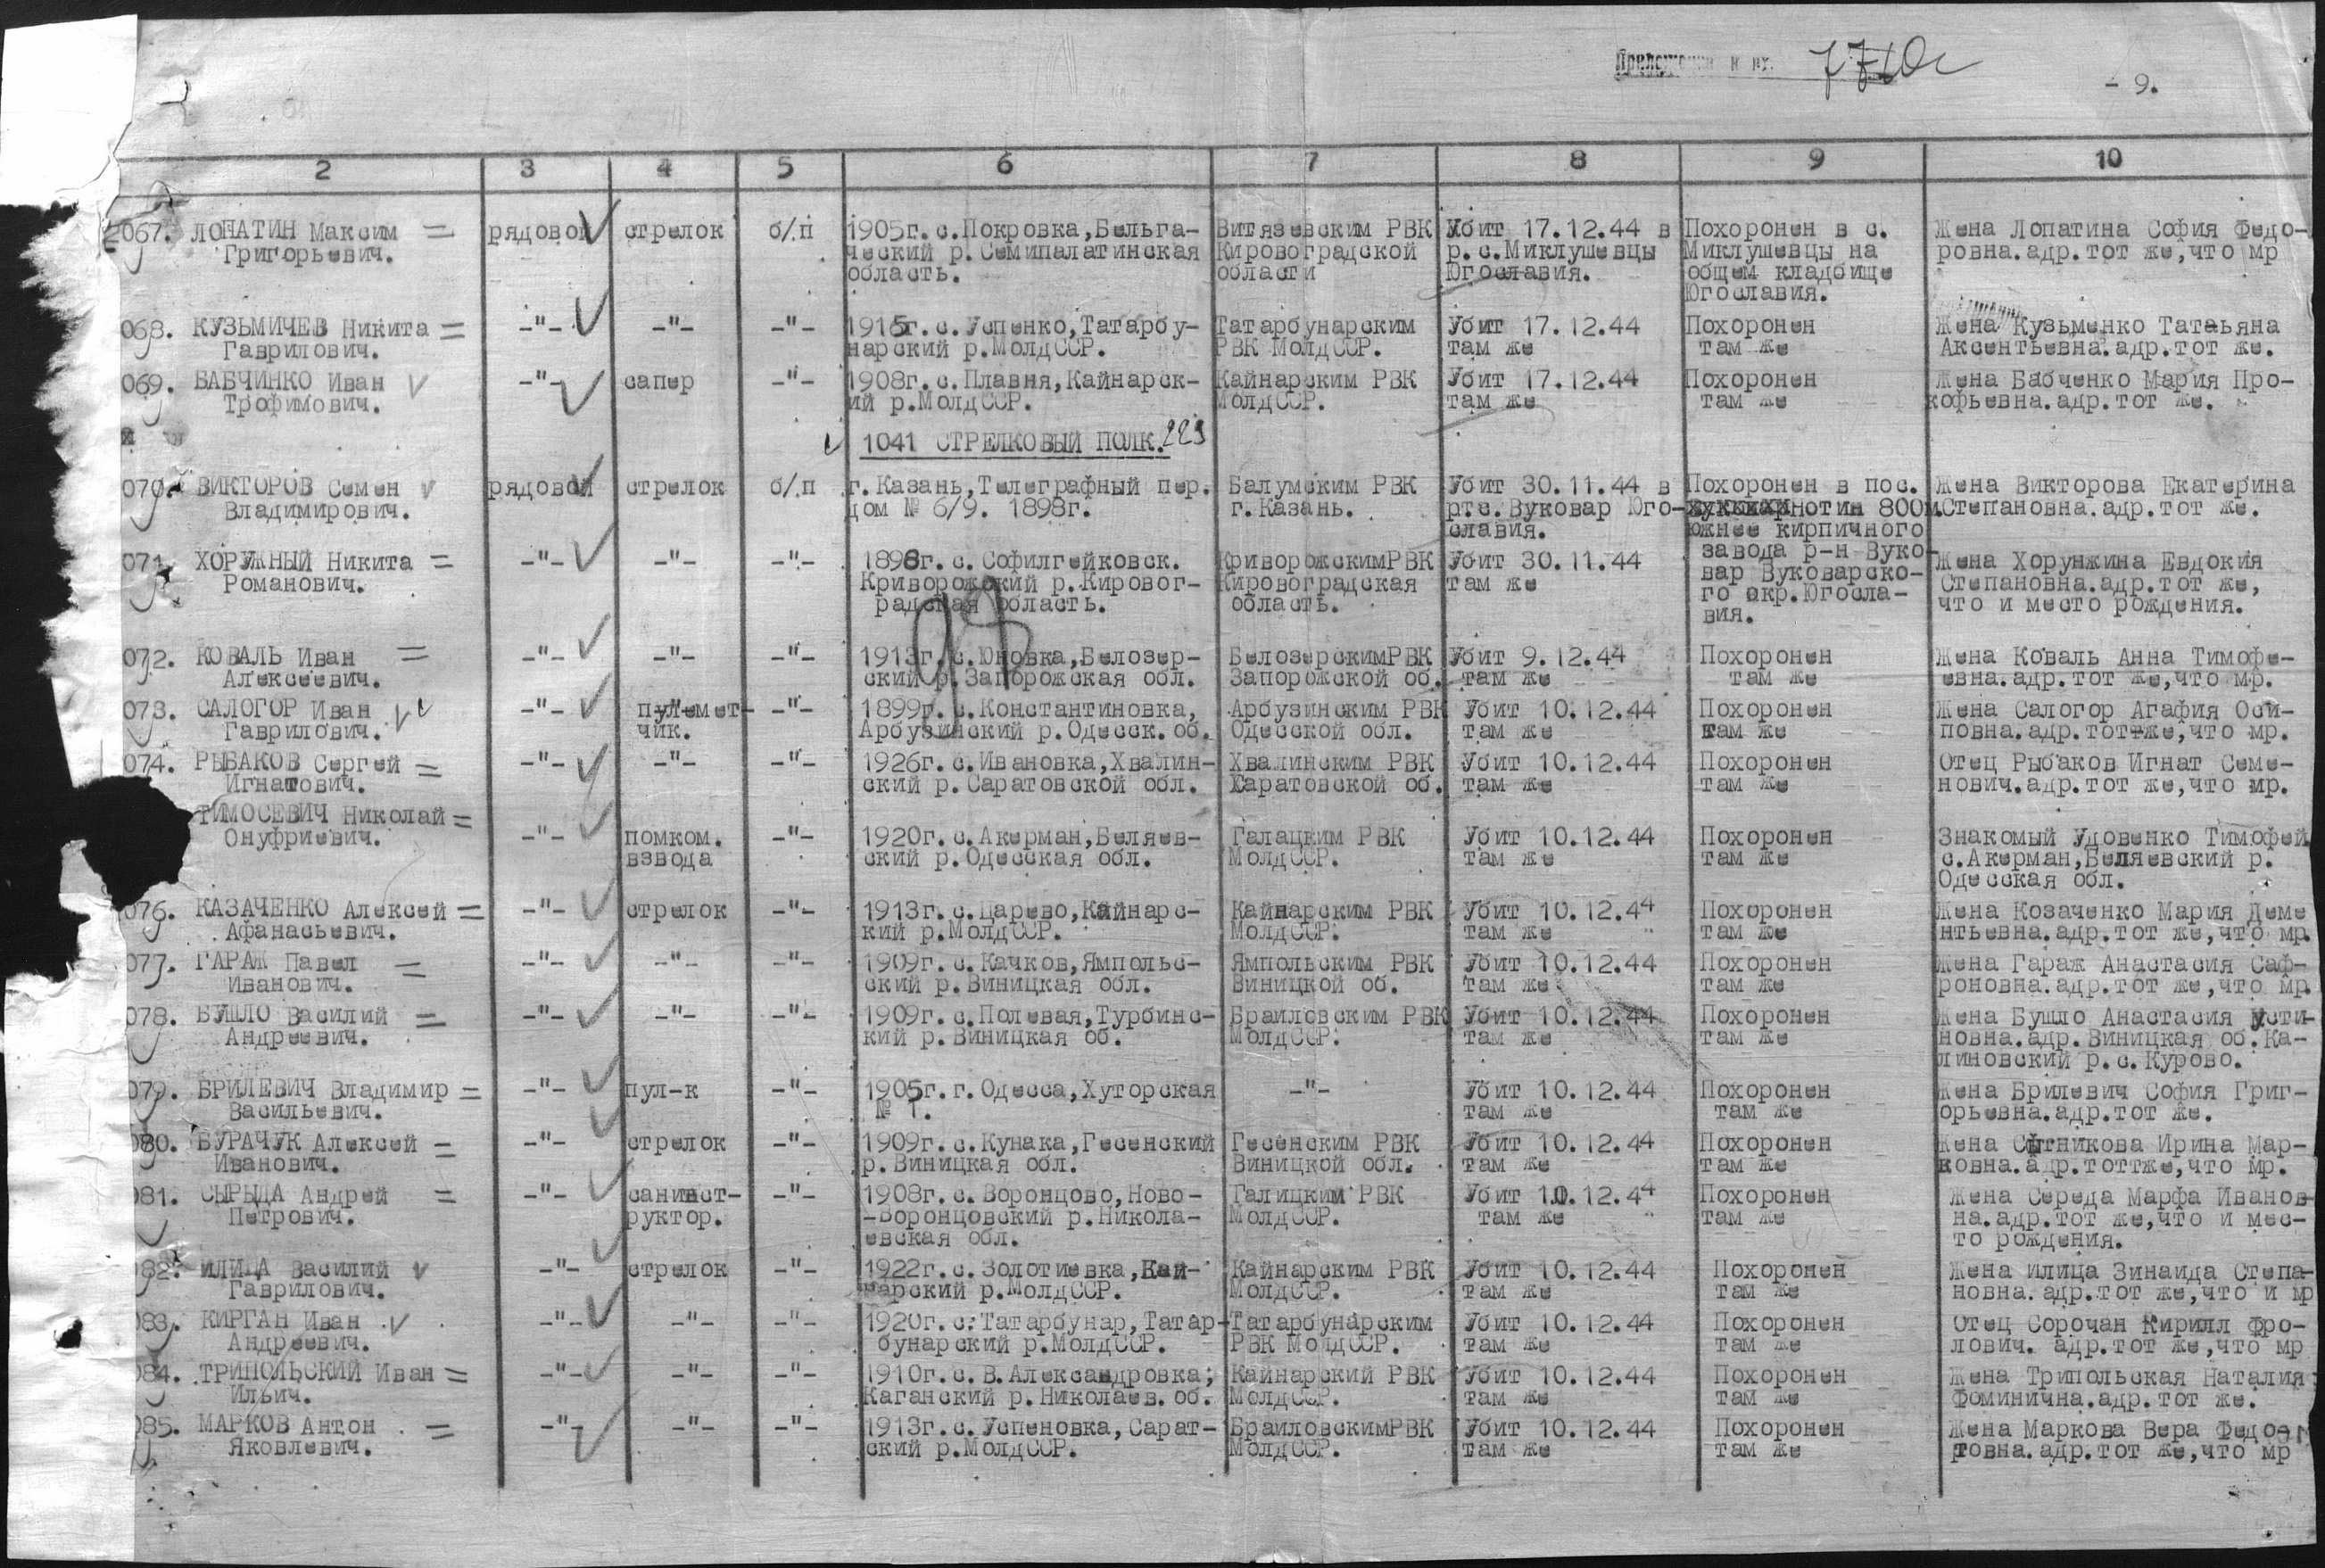 Приложение к вх. 7710с
- 9.
2 3 4 5 6 7 8 9 10
2067. ЛОПАТИН Максим = рядовой стрелок б/п 1905г.с.Покровка,Бельга- Витязевским РВК Убит 17.12.44 в Похоронен в с. Жена Лопатина София Федо-
Григорьевич. ческий р.Семипалатинская Кировоградской р.с.Миклушевцы Миклушевцы на ровна.адр.тот же,что мр
область. области Югославия. общем кладбище
Югославия.
068. КУЗЬМИЧЕВ Никита = -"- -"- -"- 1915г.с.Успенко,Татарбу- Татарбунарским Убит 17.12.44 Похоронен Жена Кузьменко Татаьяна
Гаврилович. нарский р.МолдССР. РВК МолдССР. там же там же Аксентьевна.адр.тот же.
069. БАБЧИНКО Иван -"- сапер -"- 1908г.с.Плавня,Кайнарск- Кайнарским РВК Убит 17.12.44 Похоронен Жена Бабченко Мария Про-
Трофимович. ий р.МолдССР. МолдССР. там же там же кофьевна.адр.тот же.
1041 СТРЕЛКОВЫЙ ПОЛК. 223
070. ВИКТОРОВ Семен рядовой стрелок б/п г.Казань,Телеграфный пер. Балумским РВК Убит 30.11.44 в Похоронен в пос. Жена Викторова Екатерина
Владимирович. дом № 6/9. 1898г. г.Казань. ртс.Вуковар Юго- Нотин 800м. Степановна.адр.тот же.
славия. южнее кирпичного
071. ХОРУЖНЫЙ Никита = -"- -"- -"- 1898г.с.Софилгейковск. КриворожскимРВК Убит 30.11.44 завода р-н Вуко- Жена Хорунжина Евдокия
Романович. Криворожский р.Кировог- Кировоградская там же вар Вуковарско- Степановна.адр.тот же,
радская область. область. го окр.Югосла- что и место рождения.
вия.
072. КОВАЛЬ Иван = -"- -"- -"- 1913г.с.Юновка,Белозер- БелозерскимРВК Убит 9.12.44 Похоронен Жена Коваль Анна Тимофе-
Алексеевич. ский р.Запорожская обл. Запорожской об. там же там же евна.адр.тот же,что мр.
073. САЛОГОР Иван -"- пулемет- -"- 1899г.с.Константиновка, Арбузинским РВК Убит 10.12.44 Похоронен Жена Салогор Агафия Оси-
Гаврилович. чик. Арбузинский р.Одесск.об. Одесской обл. там же там же повна.адр.тоттже,что мр.
074. РЫБАКОВ Сергей = -"- -"- -"- 1926г.с.Ивановка,Хвалин- Хвалинским РВК Убит 10.12.44 Похоронен Отец Рыбаков Игнат Семе-
Игнатович. ский р.Саратовской обл. Саратовской об. там же там же нович.адр.тот же,что мр.
ТИМОСЕВИЧ Николай = -"- помком. -"- 1920г.с.Акерман,Беляев- Галацким РВК Убит 10.12.44 Похоронен Знакомый Удовенко Тимофей
Онуфриевич. взвода ский р.Одесская обл. МолдССР. там же там же с.Акерман,Беляевский р.
Одесская обл.
076. КАЗАЧЕНКО Алексей = -"- стрелок -"- 1913г.с.Царево,Кайнарс- Кайнарским РВК Убит 10.12.44 Похоронен Жена Козаченко Мария Деме
Афанасьевич. кий р.МолдССР. МолдССР. там же там же нтьевна.адр.тот же,что мр.
077. ГАРАЖ Павел = -"- -"- -"- 1909г.с.Качков,Ямпольс- Ямпольским РВК Убит 10.12.44 Похоронен Жена Гараж Анастасия Саф-
Иванович. ский р.Виницкая обл. Виницкой об. там же там же роновна.адр.тот же,что мр.
078. БУШЛО Василий = -"- -"- -"- 1909г.с.Полевая,Турбинс- Браиловским РВК Убит 10.12.44 Похоронен Жена Бушло Анастасия Усти-
Андреевич. кий р.Виницкая об. МолдССР. там же там же новна.адр.Виницкая об.Ка-
линовский р.с.Курово.
079. БРИЛЕВИЧ Владимир = -"- пул-к -"- 1905г.г.Одесса,Хуторская -"- Убит 10.12.44 Похоронен Жена Брилевич София Григ-
Васильевич. № 1. там же там же орьевна.адр.тот же.
080. БУРАЧУК Алексей = -"- стрелок -"- 1909г.с.Кунака,Гесенский Гесенским РВК Убит 10.12.44 Похоронен Жена Сытникова Ирина Мар-
Иванович. р.Виницкая обл. Виницкой обл. там же там же ковна.адр.тоттже,что мр.
081. СЫРЫДА Андрей = -"- санинст- -"- 1908г.с.Воронцово,Ново- Галицким РВК Убит 10.12.44 Похоронен Жена Середа Марфа Иванов-
Петрович. руктор. -Воронцовский р.Никола- МолдССР. там же там же на.адр.тот же,что и мес-
евская обл. то рождения.
082. ИЛИЦА Василий -"- стрелок -"- 1922г.с.Золотиевка,Кай- Кайнарским РВК Убит 10.12.44 Похоронен Жена Илица Зинаида Степа-
Гаврилович. нарский р.МолдССР. МолдССР. там же там же новна.адр.тот же,что и мр
083. КИРГАН Иван -"- -"- -"- 1920г.с.Татарбунар,Татар- Татарбунарским Убит 10.12.44 Похоронен Отец Сорочан Кирилл Фро-
Андреевич. бунарский р.МолдССР. РВК МолдССР. там же там же лович. адр.тот же,что мр
084. ТРИПОЛЬСКИЙ Иван = -"- -"- -"- 1910г.с.В.Александровка; Кайнарский РВК Убит 10.12.44 Похоронен Жена Трипольская Наталия
Ильич. Каганский р.Николаев.об. МолдССР. там же там же Фоминична.адр.тот же.
085. МАРКОВ Антон = -"- -"- -"- 1913г.с.Успеновка,Сарат- БраиловскимРВК Убит 10.12.44 Похоронен Жена Маркова Вера Федо-
Яковлевич. ский р.МолдССР. МолдССР. там же там же ровна.адр.тот же,что мр